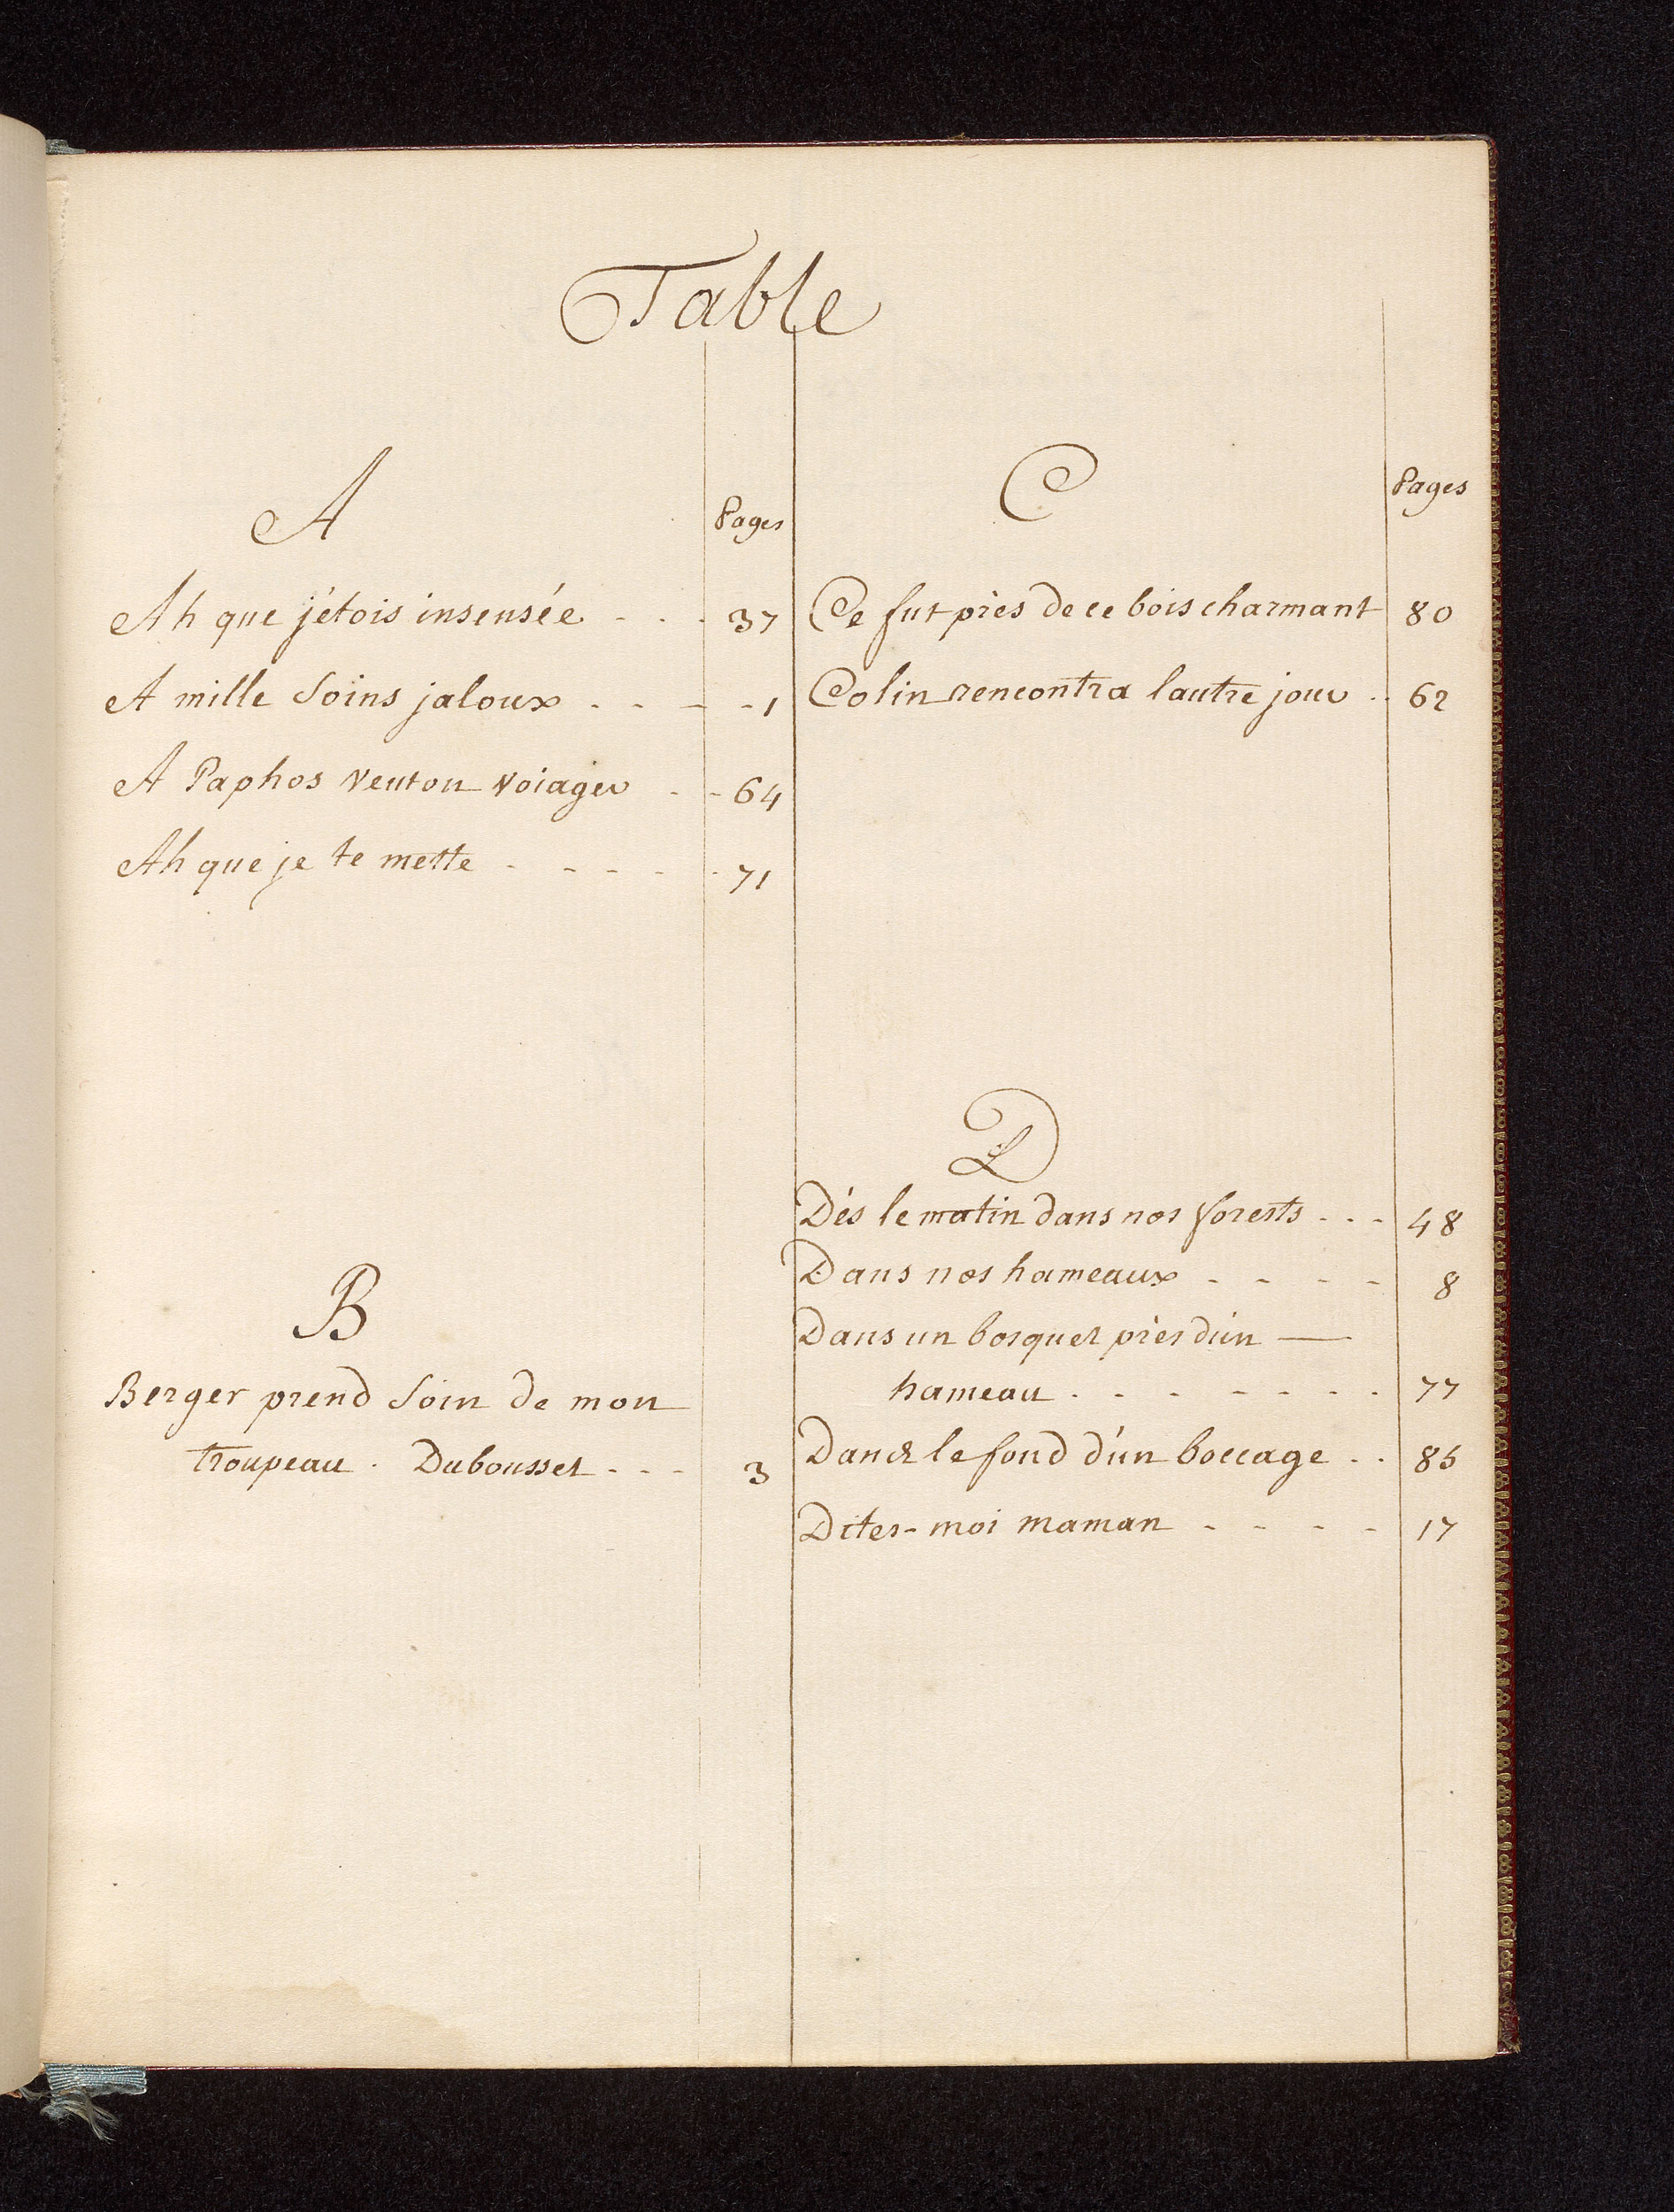 Table
A
Pages
Ah que j'étois insensée - - - 37
A mille Soins jaloux - - - - 1
A Paphos veuton voiager - - 64
Ah que je te mette - - - - - 71
B
Berger prend Soin de mon
troupeau . Dubousset - - - 3
C
Pages
Ce fut près de ce bois charmant 80
Colin rencontra lautre jour . . 62
D
Dés le matin dans nos forests - - - 48
Dans nos hameaux - - - - 8
Dans un bosquet près d'un —
hameau . - - - - - - . 77
Dans le fond d'un boccage . . 85
Dites-moi maman - - - - 17